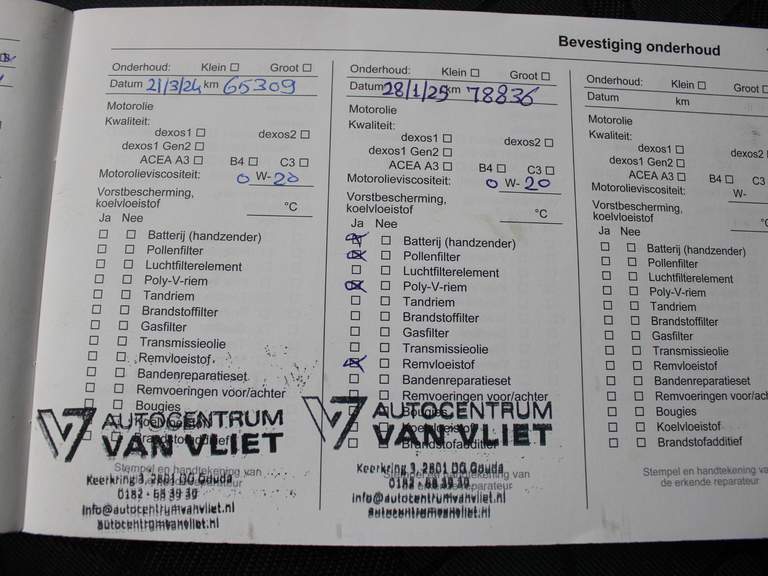 Bevestiging onderhoud
Onderhoud: Klein ☐ Groot ☐
Datum 21/3/24 km 65309
Motorolie
Kwaliteit:
dexos1 ☐ dexos2 ☐
dexos1 Gen2 ☐
ACEA A3 ☐ B4 ☐ C3 ☐
Motorolieviscositeit: 0 W- 20
Vorstbescherming,
koelvloeistof °C
Ja Nee
☐ ☐ Batterij (handzender)
☐ ☐ Pollenfilter
☐ ☐ Luchtfilterelement
☐ ☐ Poly-V-riem
☐ ☐ Tandriem
☐ ☐ Brandstoffilter
☐ ☐ Gasfilter
☐ ☐ Transmissieolie
☐ ☐ Remvloeistof
☐ ☐ Bandenreparatieset
☐ ☐ Remvoeringen voor/achter
☐ ☐ Bougies
☐ ☐ Koelvloeistof
☐ ☐ Brandstofadditief
Stempel en handtekening van
de erkende reparateur
AUTOCENTRUM
VAN VLIET
Keerkring 3, 2801 DG Gouda
0182 - 68 39 30
info@autocentrumvanvliet.nl
autocentrumvanvliet.nl
Onderhoud: Klein ☐ Groot ☐
Datum 28/1/25 km 78836
Motorolie
Kwaliteit:
dexos1 ☐ dexos2 ☐
dexos1 Gen2 ☐
ACEA A3 ☐ B4 ☐ C3 ☐
Motorolieviscositeit: 0 W- 20
Vorstbescherming,
koelvloeistof °C
Ja Nee
☒ ☐ Batterij (handzender)
☒ ☐ Pollenfilter
☐ ☐ Luchtfilterelement
☒ ☐ Poly-V-riem
☐ ☐ Tandriem
☐ ☐ Brandstoffilter
☐ ☐ Gasfilter
☐ ☐ Transmissieolie
☒ ☐ Remvloeistof
☐ ☐ Bandenreparatieset
☐ ☐ Remvoeringen voor/achter
☐ ☐ Bougies
☐ ☐ Koelvloeistof
☐ ☐ Brandstofadditief
Stempel en handtekening van
de erkende reparateur
AUTOCENTRUM
VAN VLIET
Keerkring 3, 2801 DG Gouda
0182 - 68 39 30
info@autocentrumvanvliet.nl
autocentrumvanvliet.nl
Onderhoud: Klein ☐ Groot ☐
Datum km
Motorolie
Kwaliteit:
dexos1 ☐ dexos2
dexos1 Gen2 ☐
ACEA A3 ☐ B4 ☐ C3
Motorolieviscositeit: W-
Vorstbescherming,
koelvloeistof
Ja Nee
☐ ☐ Batterij (handzender)
☐ ☐ Pollenfilter
☐ ☐ Luchtfilterelement
☐ ☐ Poly-V-riem
☐ ☐ Tandriem
☐ ☐ Brandstoffilter
☐ ☐ Gasfilter
☐ ☐ Transmissieolie
☐ ☐ Remvloeistof
☐ ☐ Bandenreparatieset
☐ ☐ Remvoeringen voor/
☐ ☐ Bougies
☐ ☐ Koelvloeistof
☐ ☐ Brandstofadditief
Stempel en handtekening
de erkende reparateur